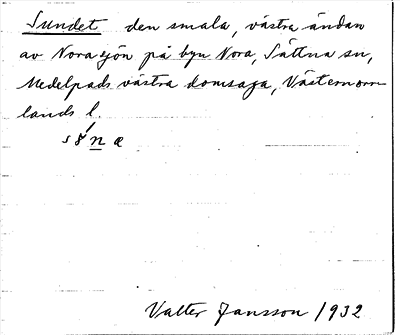 Sundet den smala, västra ändan
av Norasjön på byn Nora, Sättna sn,
Medelpads västra domsaga, Västernorr-
lands l.
Valter Jansson 1932